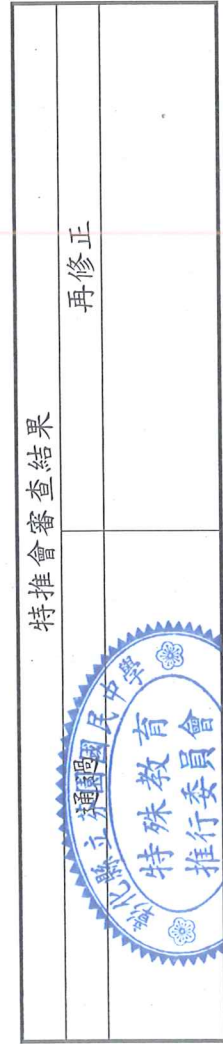 特推會審查結果
通過
再修正
彰化縣立 國民中學
特殊教育
推行委員會